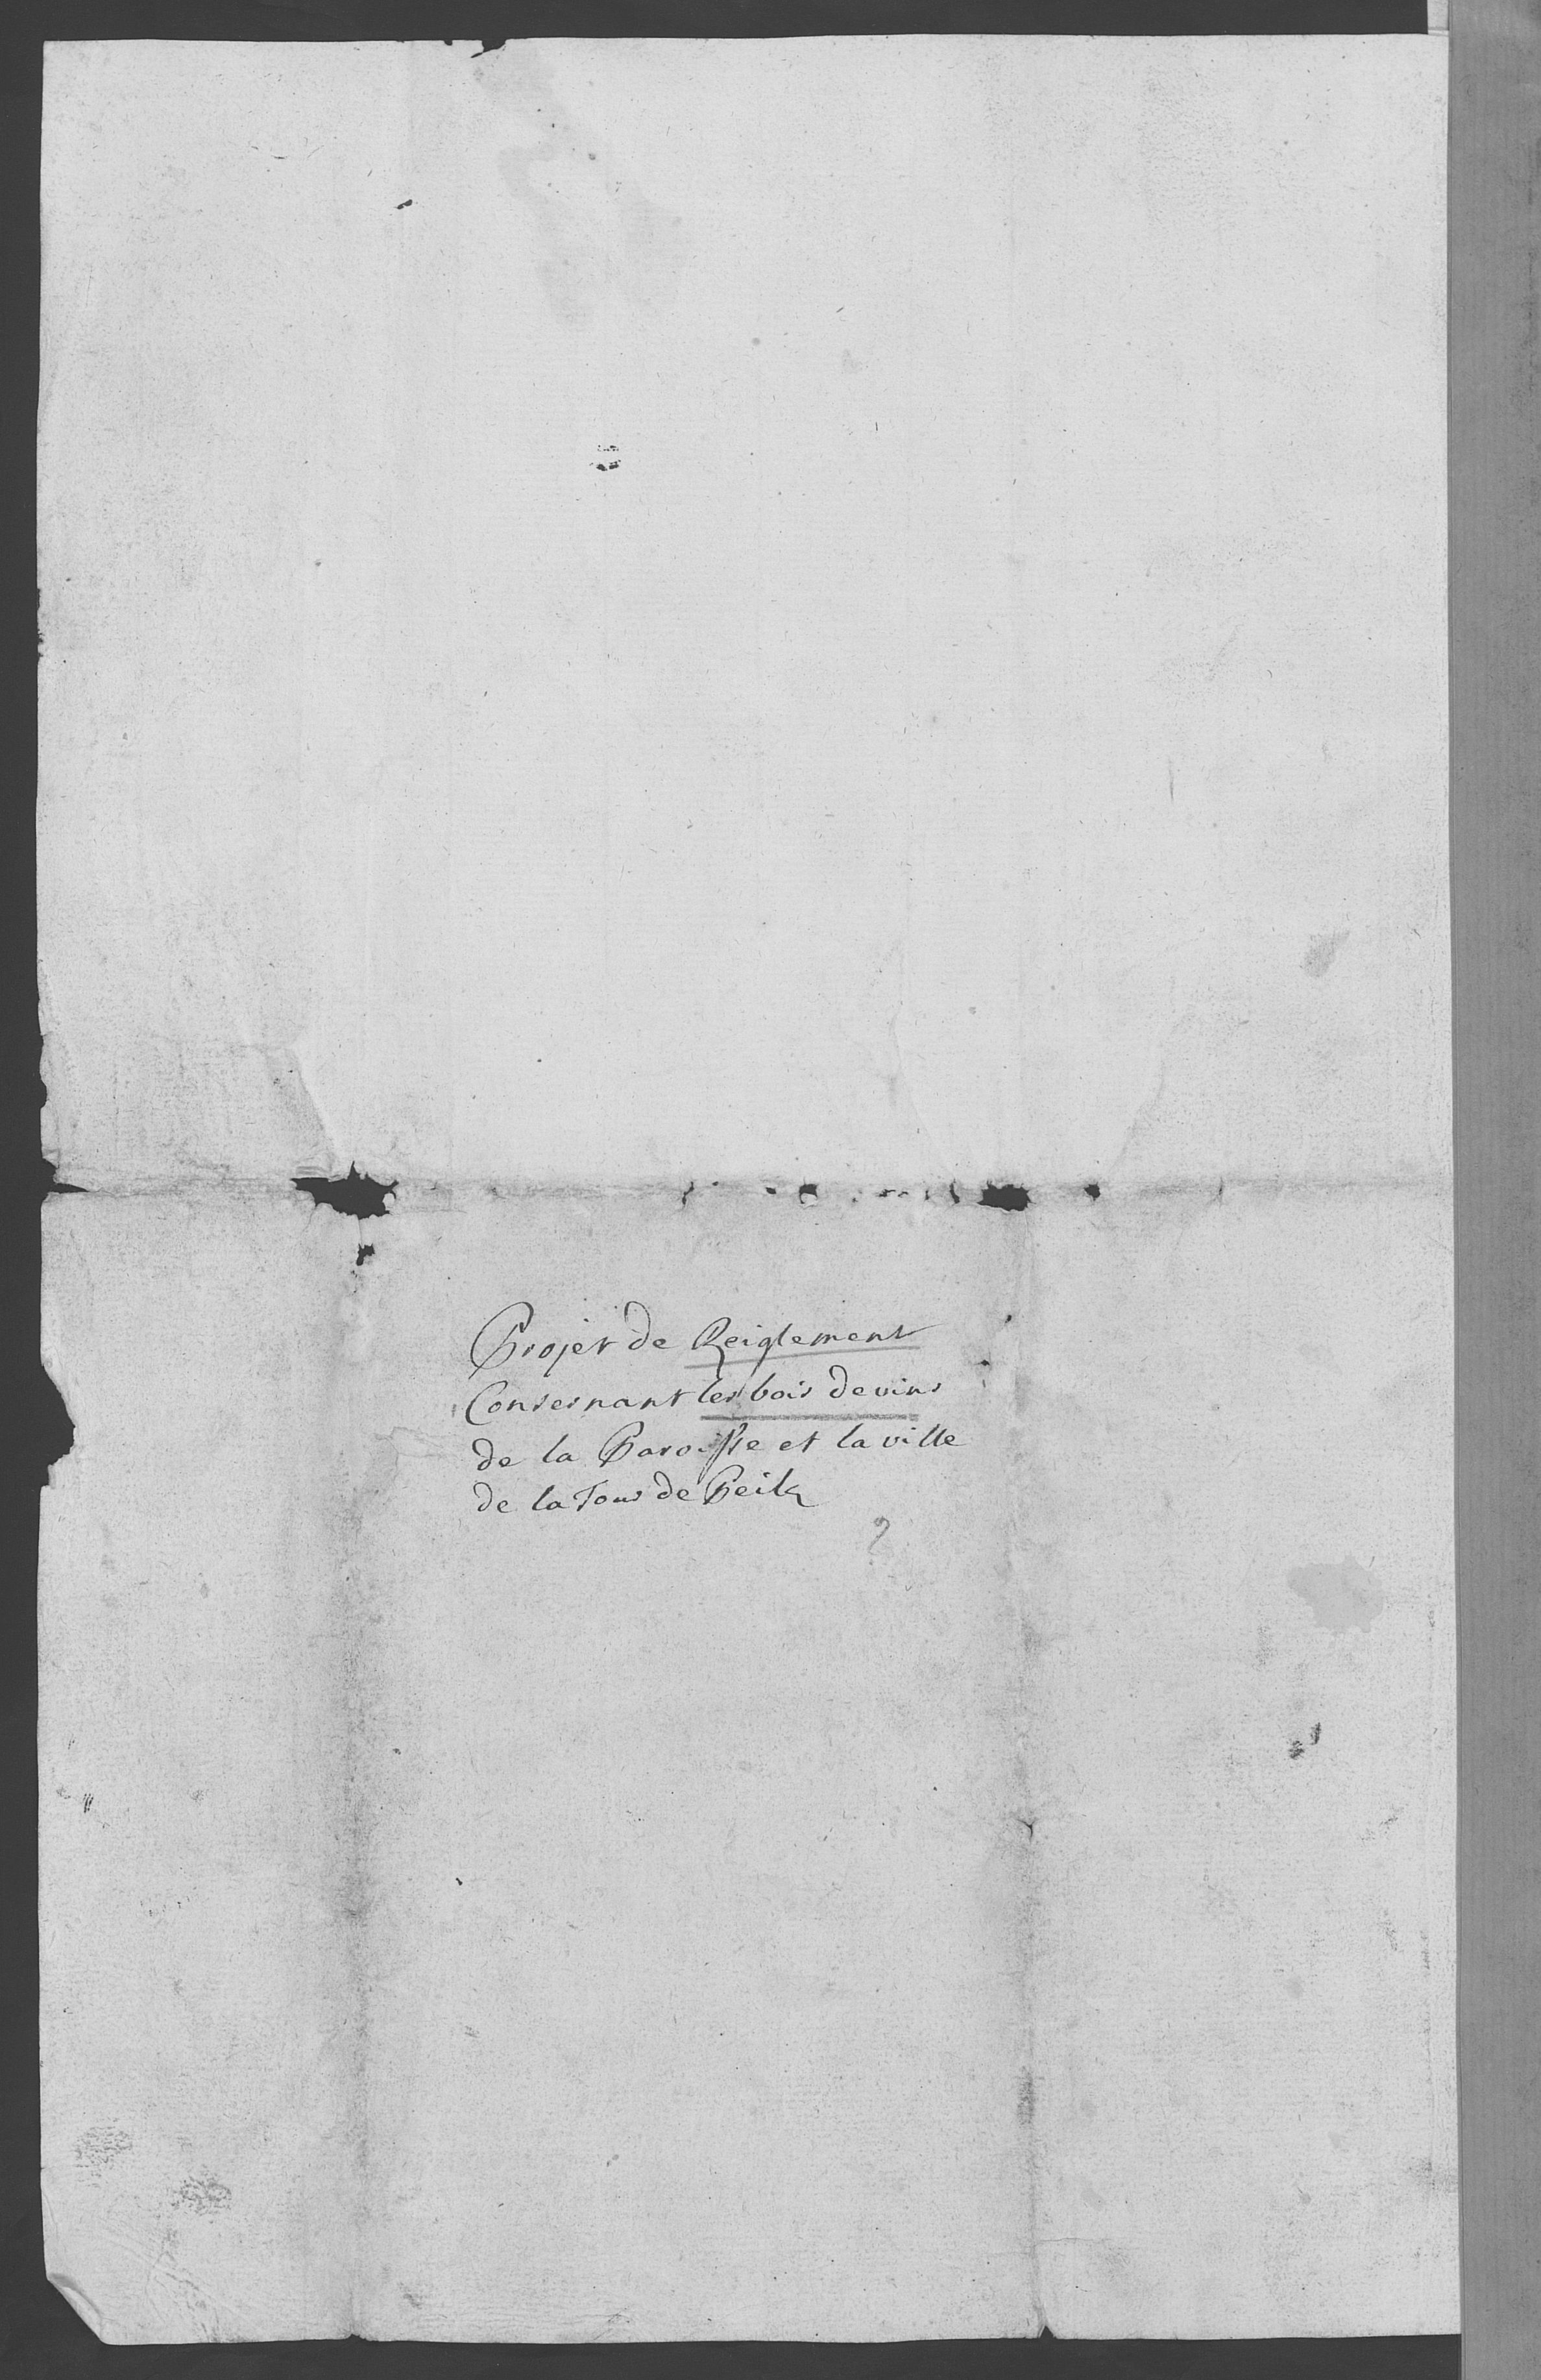 Projet de Reiglement
Consernant les bois devins
de la Paroisse et la ville
de la Tour de Peilz